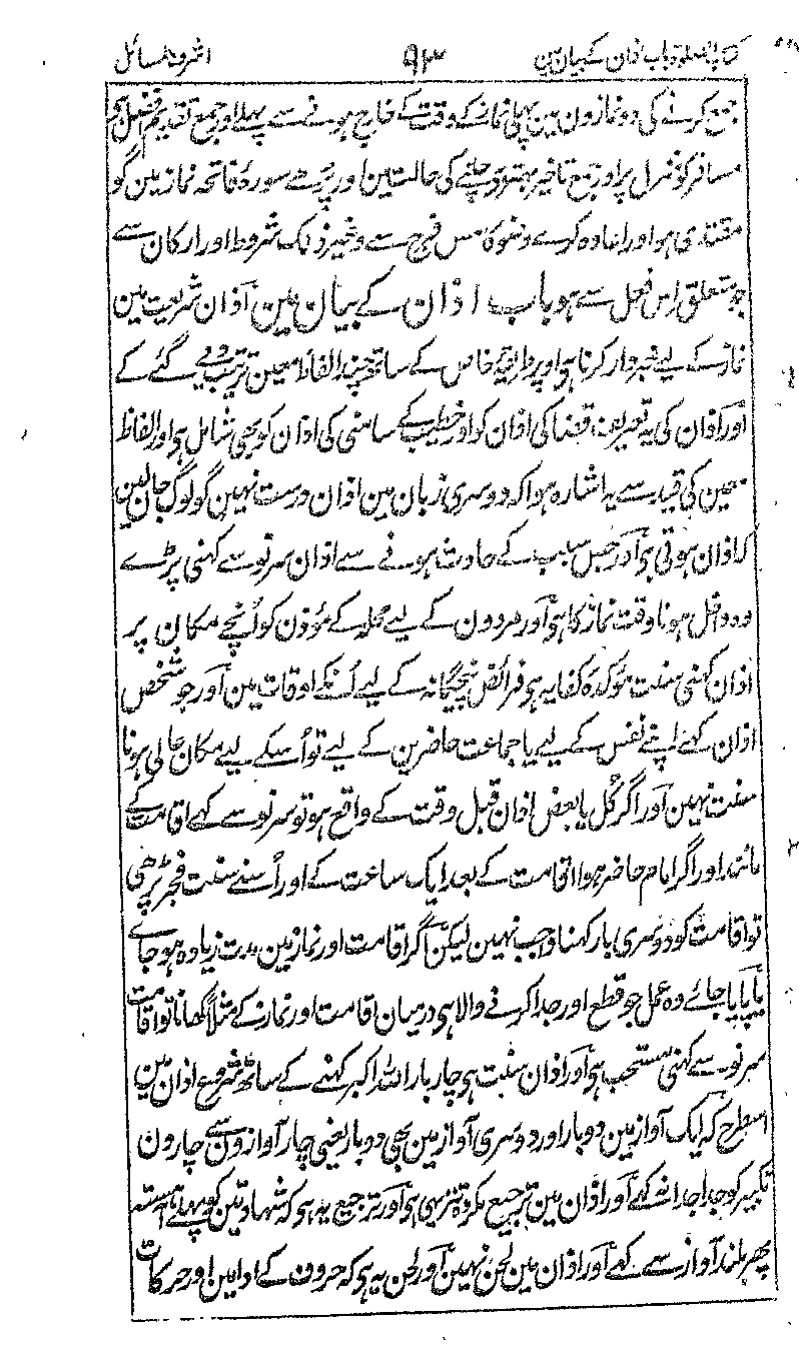 کتاب الصلوۃ باب اذان کے بیان مین ۹۳ اشرف المسائل
جمع کرنے کی دو نمازون مین پہلی نماز کے وقت کے خارج ہونے سے پہلے اور جمع تقدیم افضل ہو
مسافر کو منزل پر اور جمع تاخیر بہتر ہو چلنے کی حالت مین اور پڑھے سورۂ فاتحہ نماز مین گو
مقتدی ہو اور اعادہ کرے وضو کا مس فرج سے وغیر ذلک شروط اور ارکان سے
جو متعلق اس فعل سے ہو باب اذان کے بیان مین اذان شریعت مین
نماز کے لیے خبردار کرنا ہو اوپر طریقۂ خاص کے ساتھ چند الفاظ معین ترتیب دیے گئے کے
اور اذان کی یہ تعریف قضا کی اذان کو اور خطیب کے سامنی کی اذان کو بھی شامل ہو اور الفاظ
معین کی قید سے یہ اشارہ ہوا کہ دوسری زبان مین اذان درست نہین گو لوگ جان لین
کہ اذان ہوتی ہو اور جس سبب کے حادث ہونے سے اذان سر نو سے کہنی پڑے
وہ داخل ہونا وقت نماز کا ہو اور مردون کے لیے محلہ کے مؤذن کو اُنچے مکان پر
اذان کہنی سنت مؤکدہ کفایہ ہو فرائض پنجگانہ کے لیے اُنکے اوقات مین اور جو شخص
اذان کہے اپنے نفس کے لیے یا جماعت حاضرین کے لیے تو اُسکے لیے مکان عالی ہونا
سنت نہین اور اگر کُل یا بعض اذان قبل وقت کے واقع ہو تو سر نو سے کہے اقامت کے
مانند اور اگر امام حاضر ہوا اقامت کے بعد ایک ساعت کے اور اُسنے سنت فجر پڑھی
تو اقامت کو دوسری بار کہنا واجب نہین لیکن اگر اقامت اور نماز مین مدت زیادہ ہو جاے
یا پایا جائے وہ عمل جو قطع اور جدا کرنے والا ہو درمیان اقامت اور نماز کے مثلاً کھانا تو اقامت
سر نو سے کہنی مستحب ہو اور اذان سنت ہو چار بار اللہ اکبر کہنے کے ساتھ شروع اذان مین
اسطرح کہ ایک آواز مین دو بار اور دوسری آواز مین بھی دو بار یعنی چار آوازون سے چارون
تکبیر کو جدا جدا نہ کہے اور اذان مین ترجیع مکروہ تنزیہی ہو اور ترجیع یہ ہو کہ شہادتین کو پہلے آہستہ
پھر بلند آواز سے کہے اور اذان مین لحن نہین اور لحن یہ ہو کہ حروف کے ادا مین اور حرکات